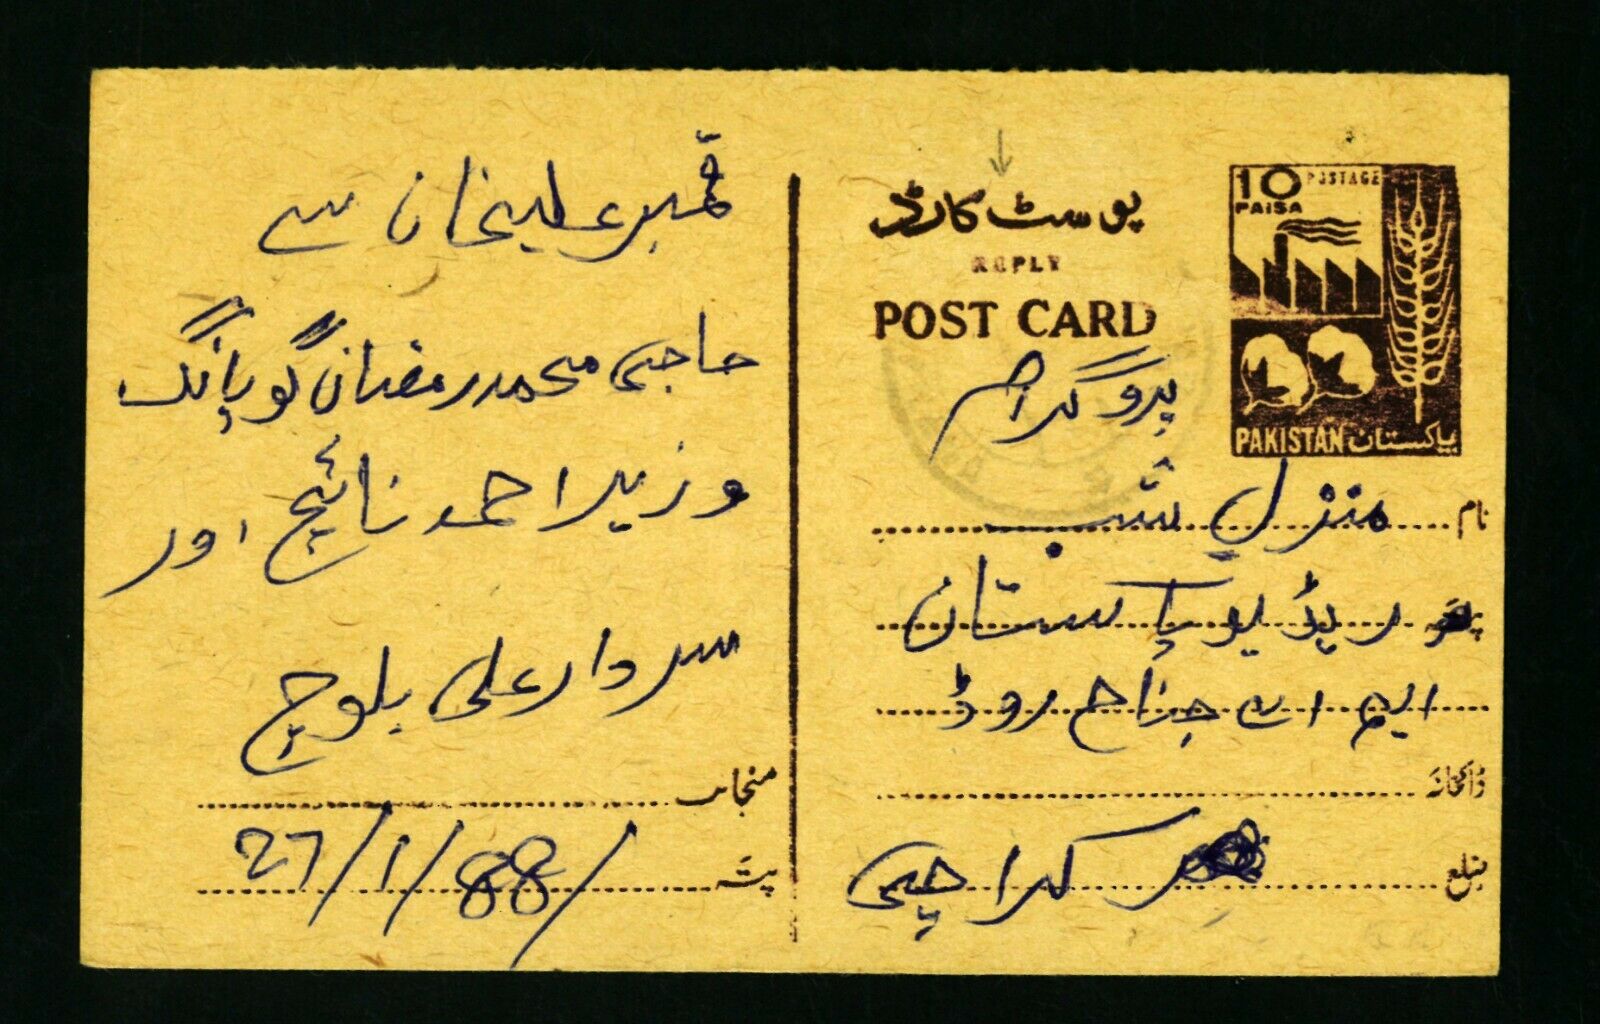 قمبر علیخان سے
حاجی محمد رمضان گوپانگ
وزیر احمد نائیچ اور
سردار علی بلوچ
منجانب
پتہ 27/1/88/
پوسٹ کارڈ
REPLY
POST CARD
10 POSTAGE
PAISA
PAKISTAN پاکستان
پروگرام
نام منزل شب
پتہ ریڈیو پاکستان
ایم اے جناح روڈ
ڈاکخانہ
ضلع کراچی